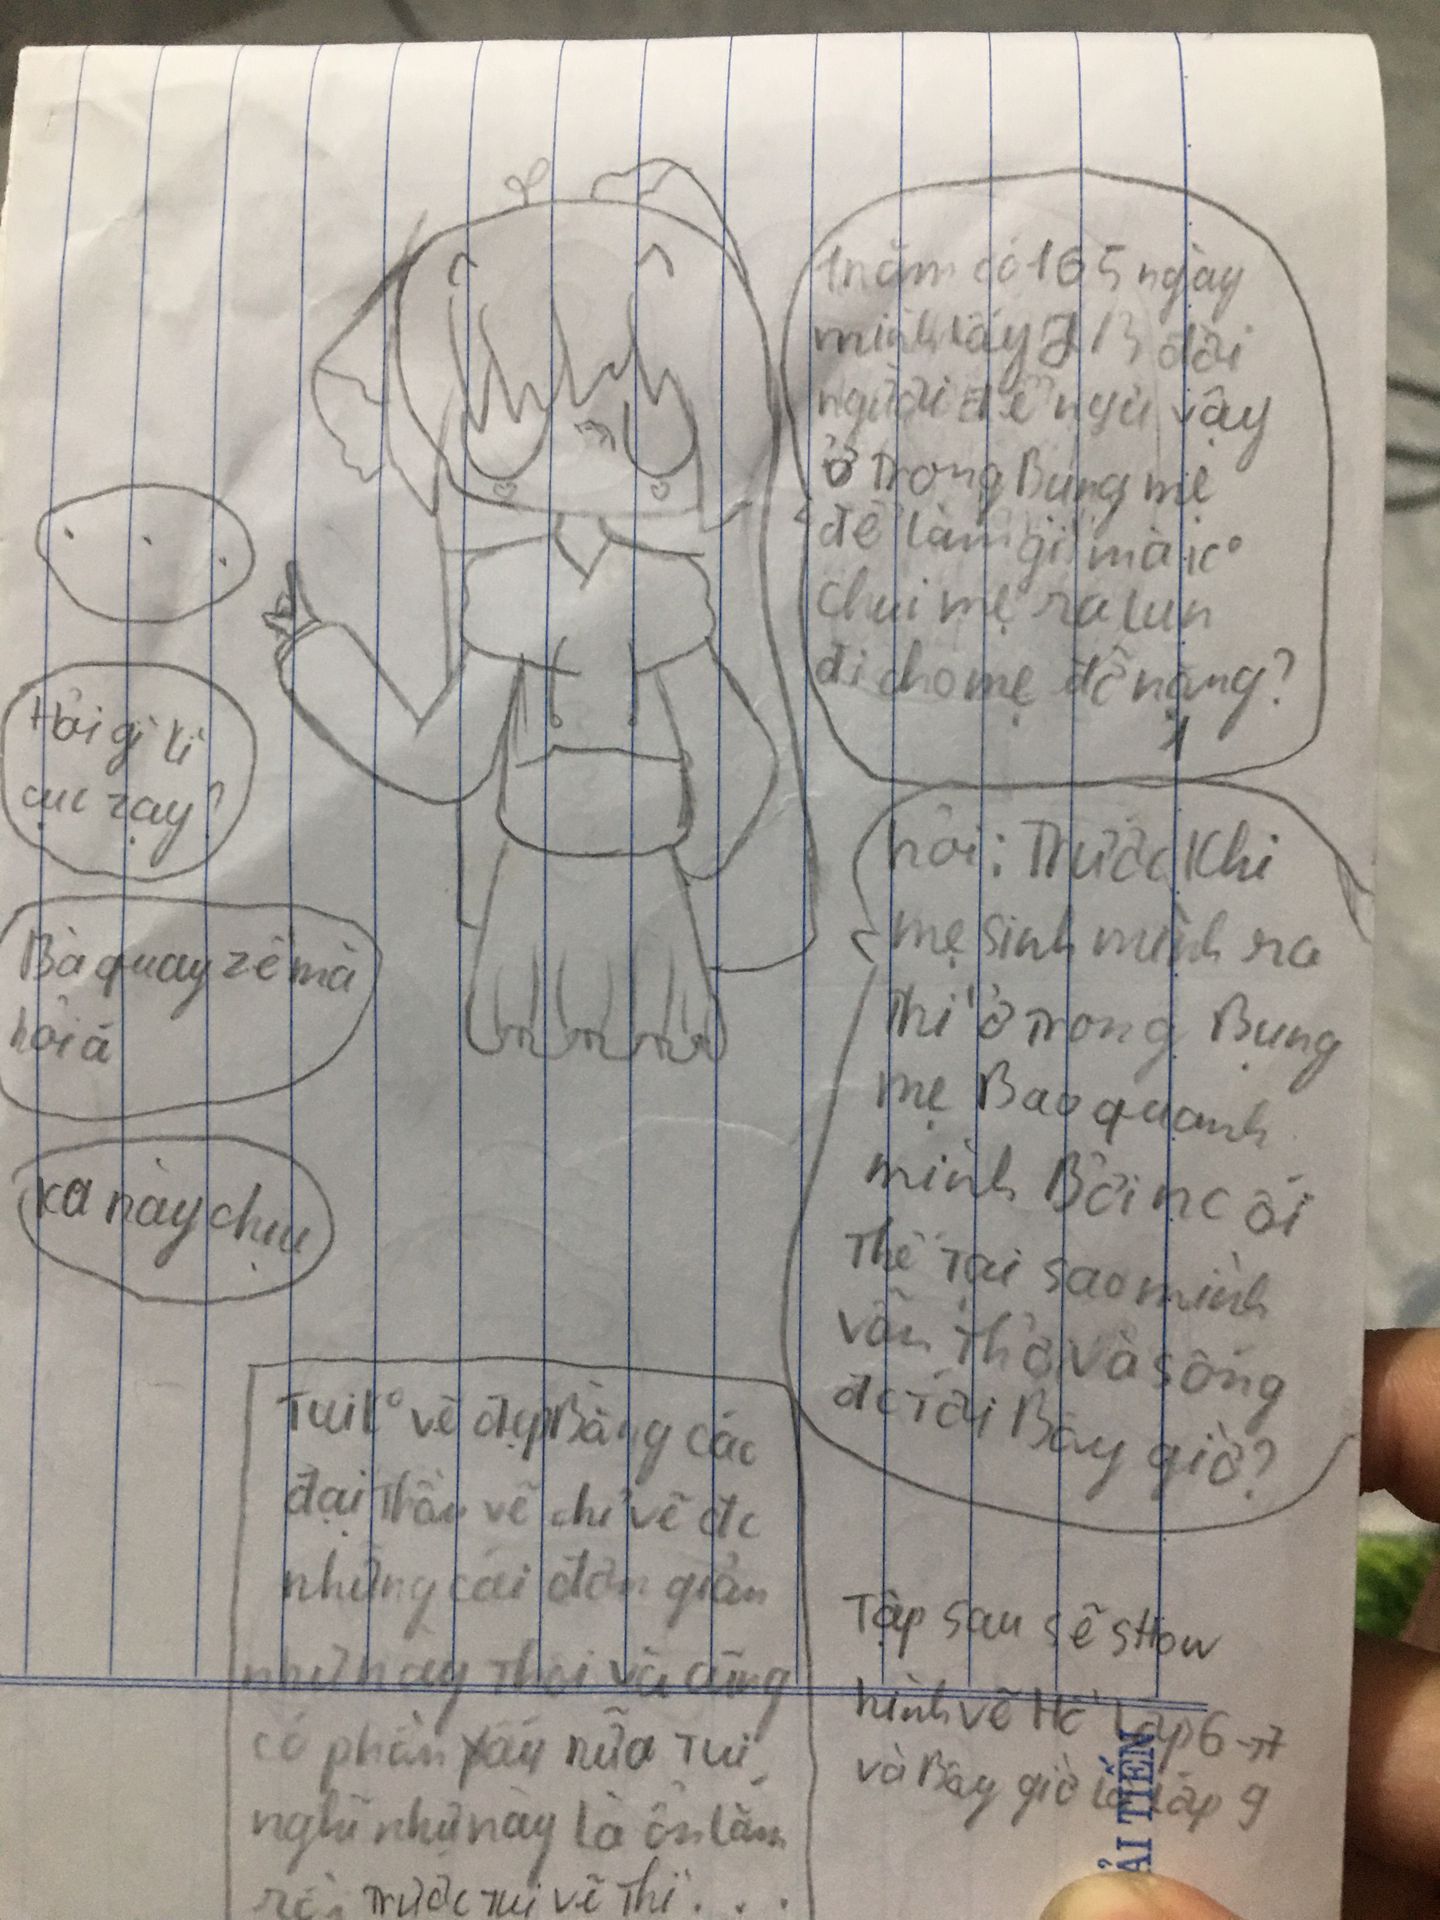 1 năm có 165 ngày
mình lấy 1/3 đời
người để ngủ vậy
ở trong Bụng mẹ
để làm gì mà ko
chui mẹ ra lun
đi cho mẹ đỡ nặng?
...
Hỏi gì kì
cục zạy?
Bà quay zề mà
hỏi á
ca này chịu
hỏi: Trước Khi
mẹ sinh mình ra
thì ở trong Bụng
mẹ Bao quanh
mình Bởi nc ối
Thế Tại sao mình
vẫn thở và sống
đc Tới Bây giờ?
Tui ko vẽ đẹp Bằng các
đại thần vẽ chỉ vẽ đc
những cái đơn giản
như này thôi và cũng
có phần xấu nữa Tui
nghĩ như này là ổn lắm
rồi Trước Tui vẽ Thì...
Tập sau sẽ sHow
hình vẽ Hồi Lớp 6 → 7
và Bây giờ là Lớp 9
ẢI TIẾN